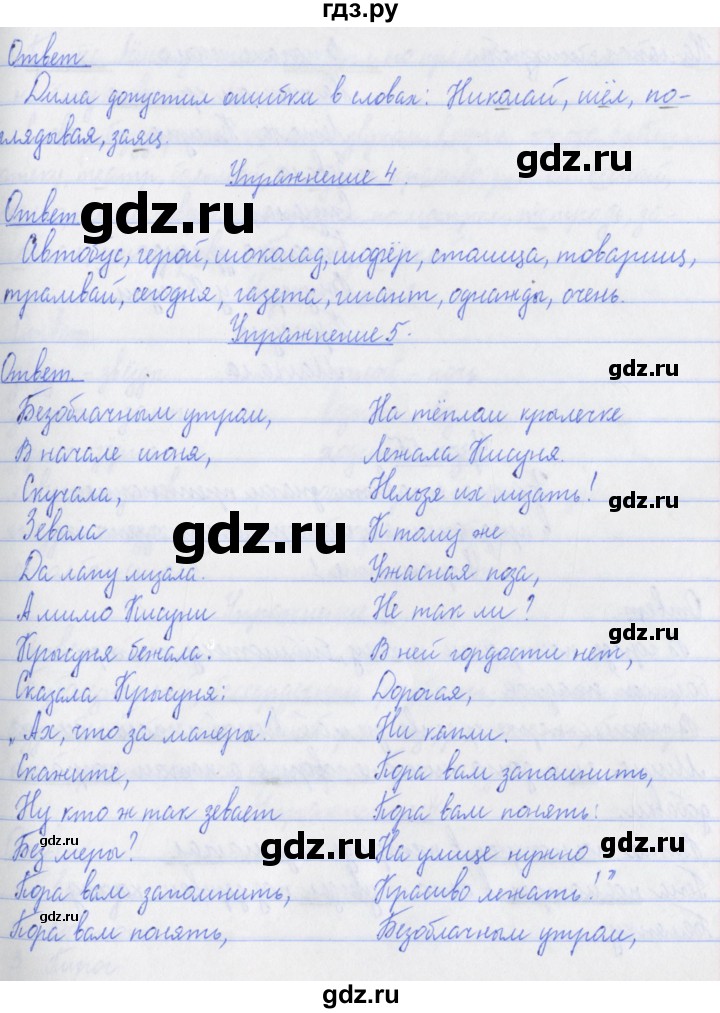 гдз.ру
Ответ
Дима допустил ошибки в словах: Николай, шёл, по-
глядывая, заяц.
gdz.ru
Упражнение 4.
Ответ
gdz.ru
Автобус, герой, шоколад, шофёр, столица, товарищ,
gdz.ru
трамвай, сегодня, газета, гигант, однажды, очень.
Упражнение 5.
Ответ.
gdz.ru
Безоблачным утром,
В начале июня,
Скучала,
Зевала
Да лапу лизала.
А мимо Кисуни
Крысуня бежала.
Сказала Крысуня:
„Ах, что за манеры!
Скажите,
Ну кто ж так зевает
Без меры?
Пора вам запомнить,
Пора вам понять,
На тёплом крылечке
Лежала Кисуня.
Нельзя их лизать!
К тому же
Ужасная поза,
Не так ли?
В ней гордости нет,
Дорогая,
Ни капли.
Пора вам запомнить,
Пора вам понять:
На улице нужно
Красиво лежать!"
Безоблачным утром,
gdz.ru
gdz.ru
gdz.ru
gdz.ru
gdz.ru
gdz.ru
gdz.ru
gdz.ru
gdz.ru